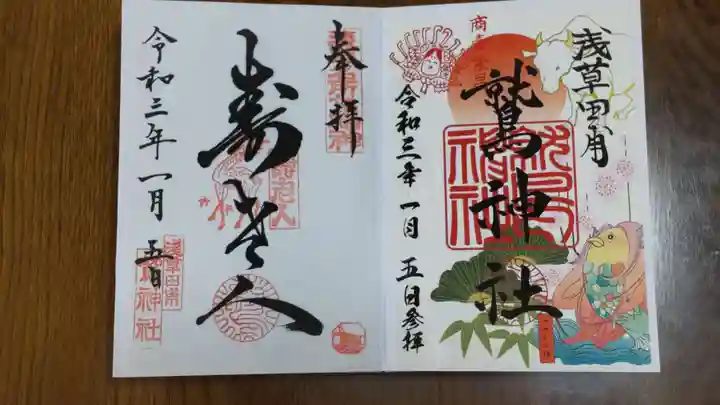 浅草田甫
鷲神社
令和三年 一月 五日参拝
奉拝
寿老人
令和三年 一月 五日
浅草田甫